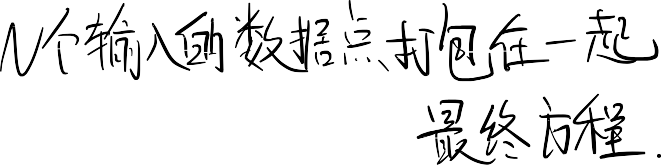 N个输入的数据点打包在一起
最终方程.